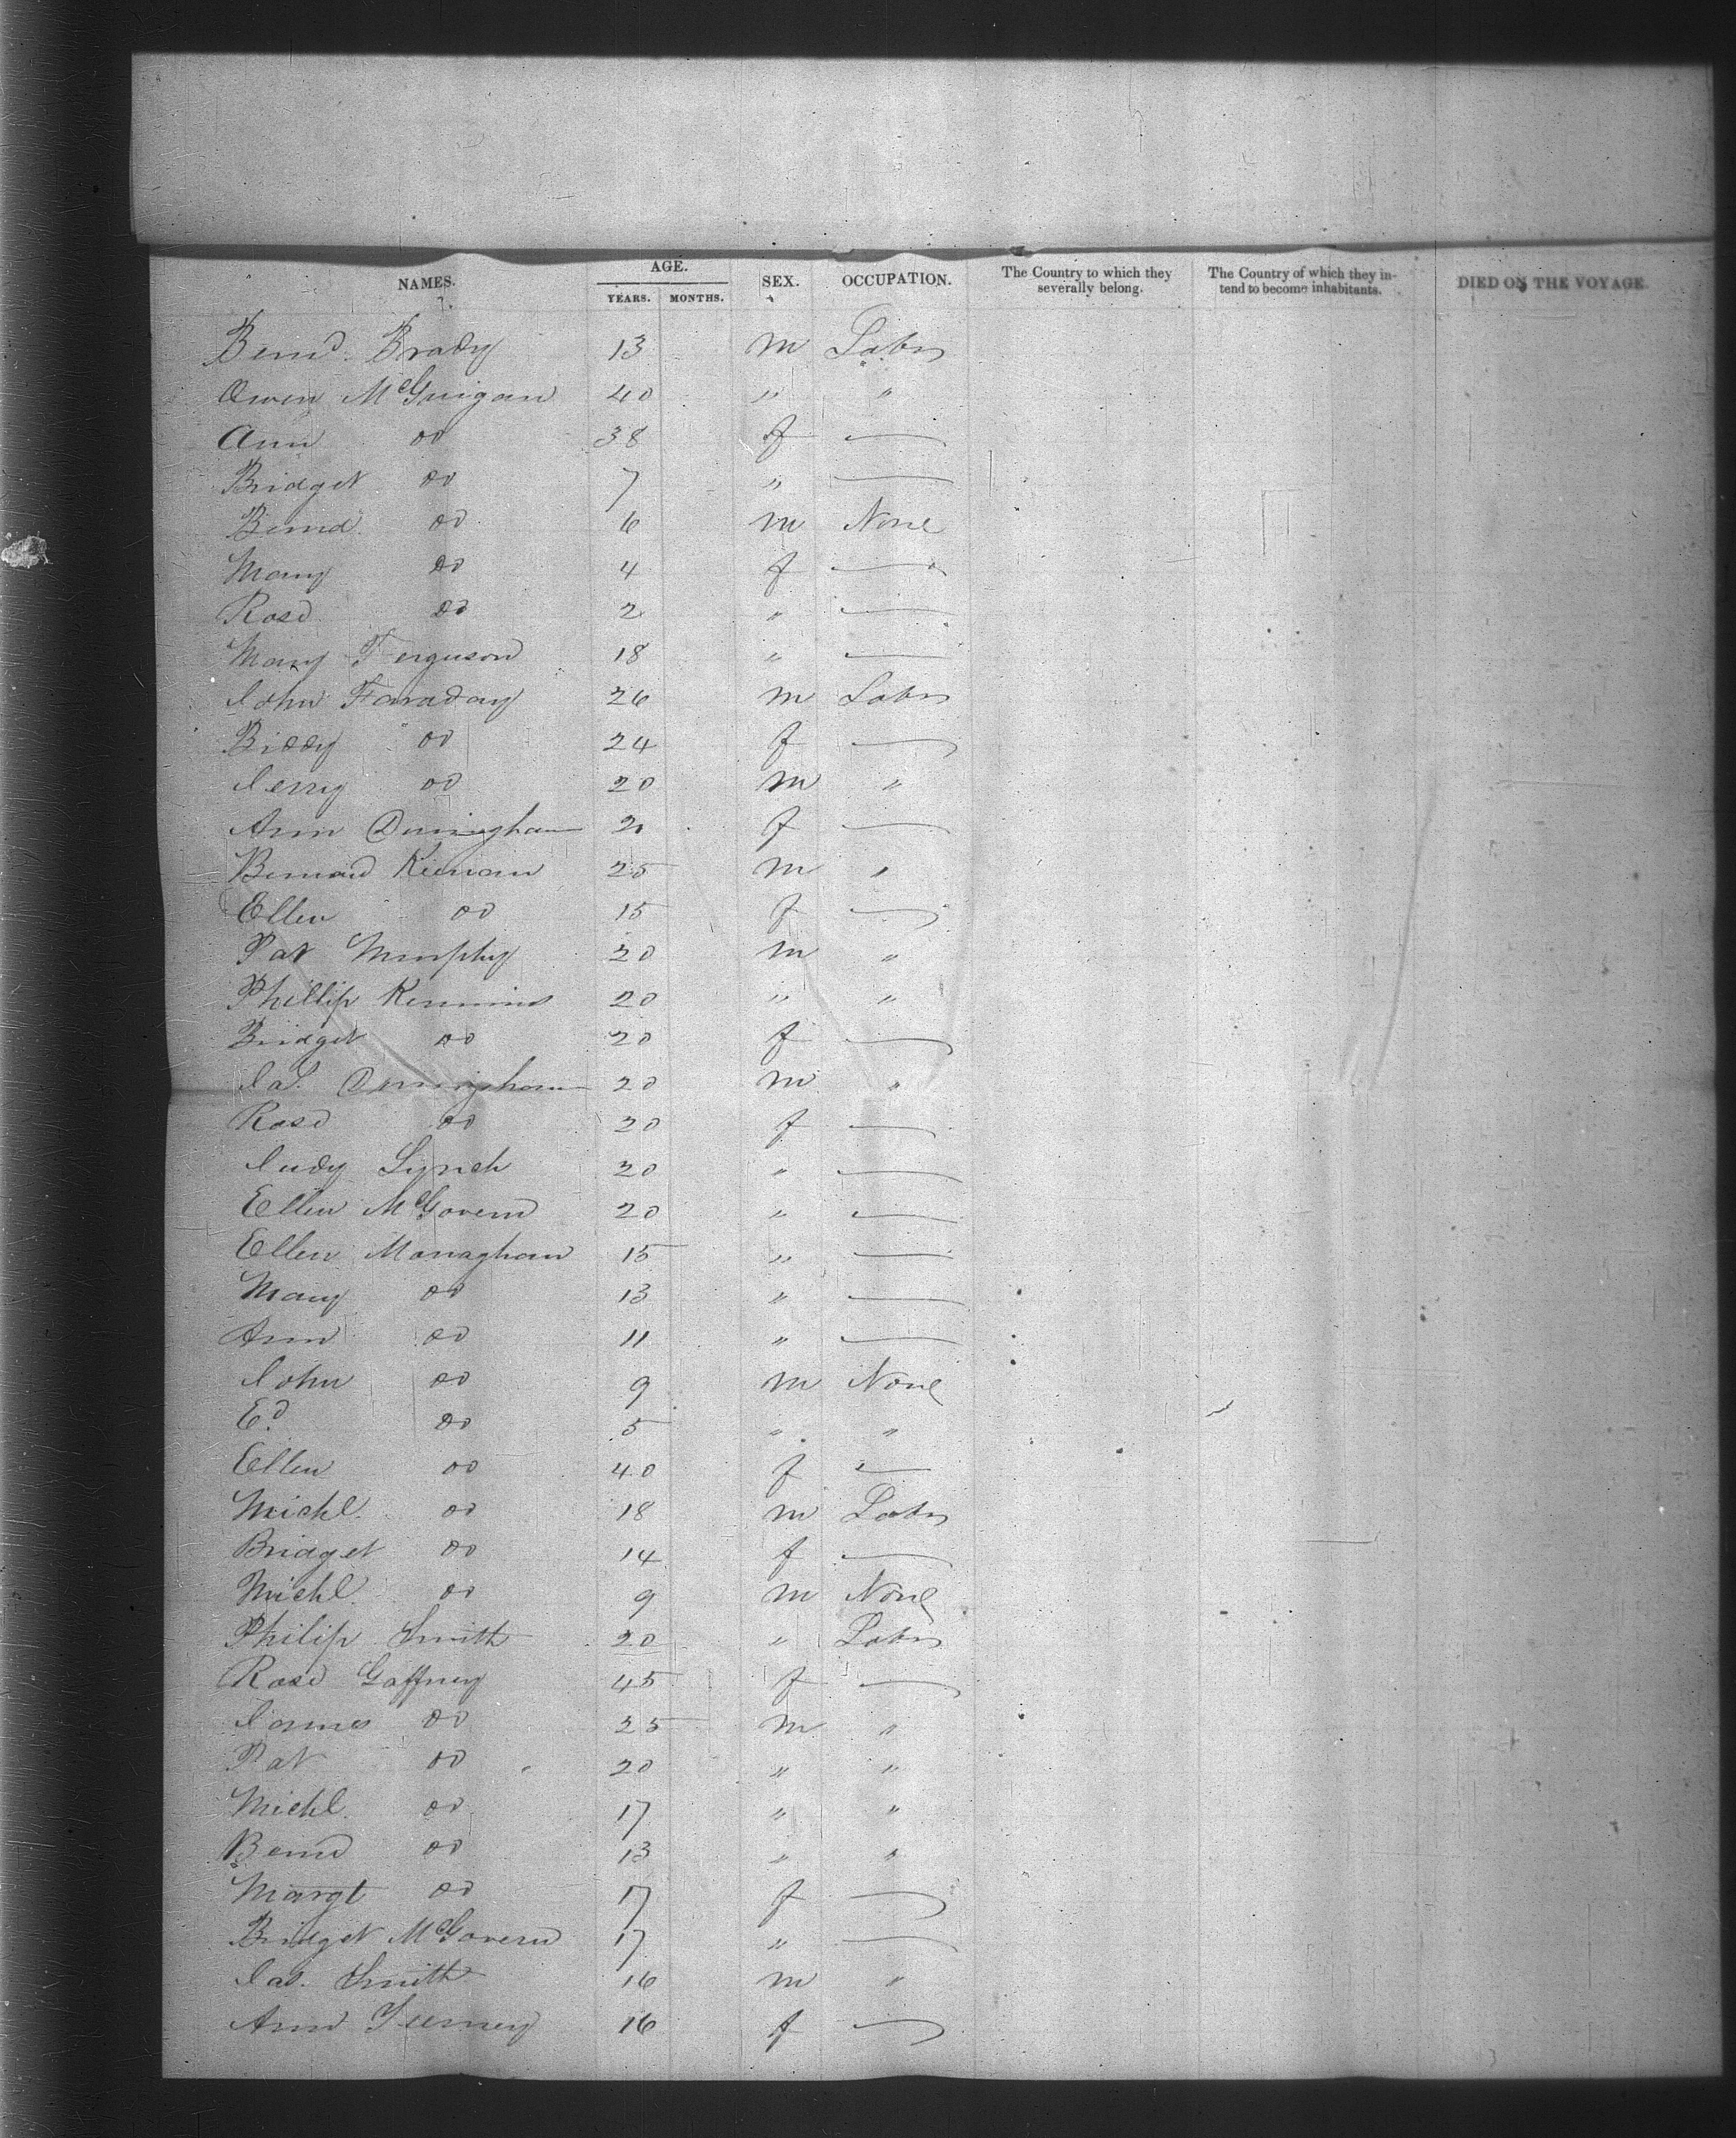 NAMES. AGE. SEX. OCCUPATION. The Country to which they severally belong. The Country of which they intend to become inhabitants. DIED ON THE VOYAGE.
YEARS. MONTHS.
Bernd. Brady 13 m Labr
Owen McGuigan 40 " "
Ann do 38 f —
Bridget do 7 " —
Bernd. do 6 m None
Mary do 4 f —
Rose do 2 " —
Mary Ferguson 18 " —
John Faraday 26 m Labr
Biddy do 24 f —
Jerry do 20 m "
Ann f —
Bernard Kiernan 25 m "
Ellen do 15 f —
Pat Murphy 20 m "
Phillip 20 " "
Bridget do 20 f —
Jas. 20 m "
Rose do 20 f —
Judy Lynch 20 " —
Ellen McGovern 20 " —
Ellen Monaghan 15 " —
Mary do 13 " —
Ann do 11 " —
John do 9 m None
Ed. do 5 " "
Ellen do 40 f —
Michl. do 18 m Labr
Bridget do 14 f —
Michl. do 9 m None
Philip Smith 20 " Labr
Rose Gaffney 45 f —
James do 25 m "
Pat do 20 " "
Michl. do 17 " "
Bernd do 13 " "
Margt do 17 f —
Bridget McGovern 17 " —
Jas. Smith 16 m "
Ann 16 f —